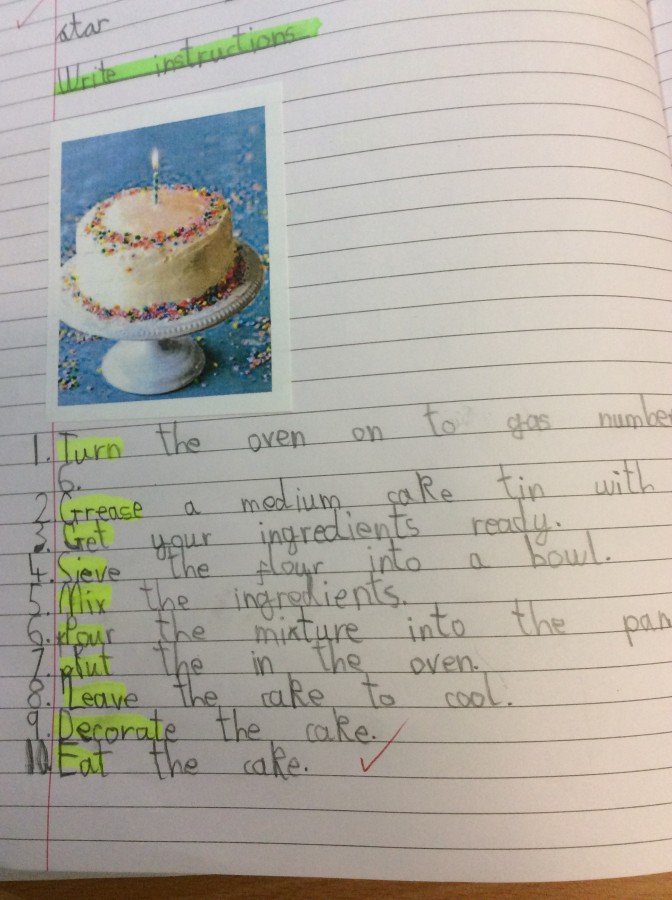 star
Write instructions
1. Turn the oven on to gas number
6.
2. Grease a medium cake tin with
3. Get your ingredients ready.
4. Sieve the flour into a bowl.
5. Mix the ingredients.
6. Pour the mixture into the pan
7. put the in the oven.
8. Leave the cake to cool.
9. Decorate the cake.
10. Eat the cake.